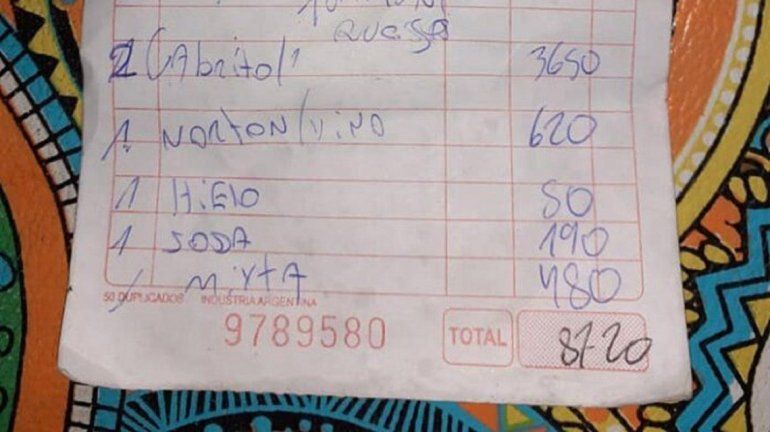 Queso
2 CAbrito/1 3650
1 NORTON/VINO 620
1 HiElo 80
1 SODA 190
1 MixtA 480
50 DUPLICADOS INDUSTRIA ARGENTINA
9789580 TOTAL 8720